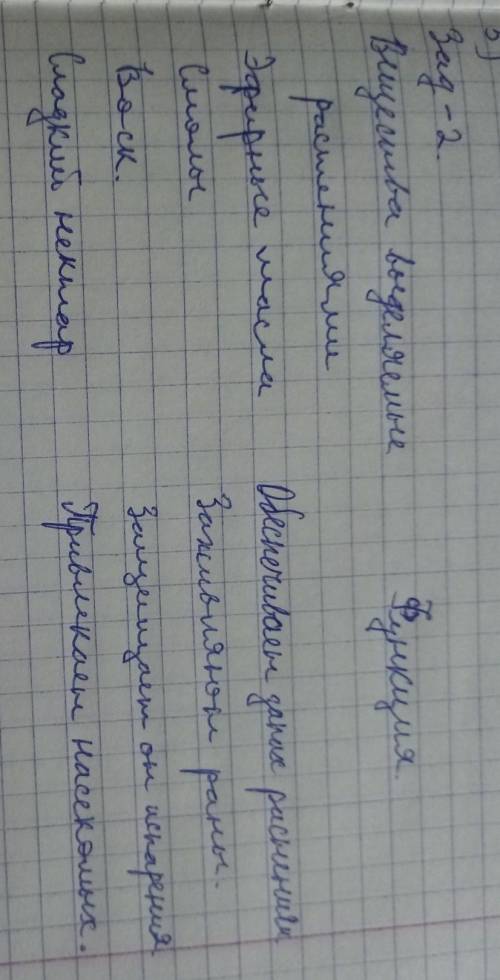 5)
Зад-2.
Вещества выделяемые Функция.
растениями
Эфирные масла Обеспечивает запах растениям
Смолы Заживляют раны.
Воск. Защищает от испарения
Сладкий нектар Привлекает насекомых.